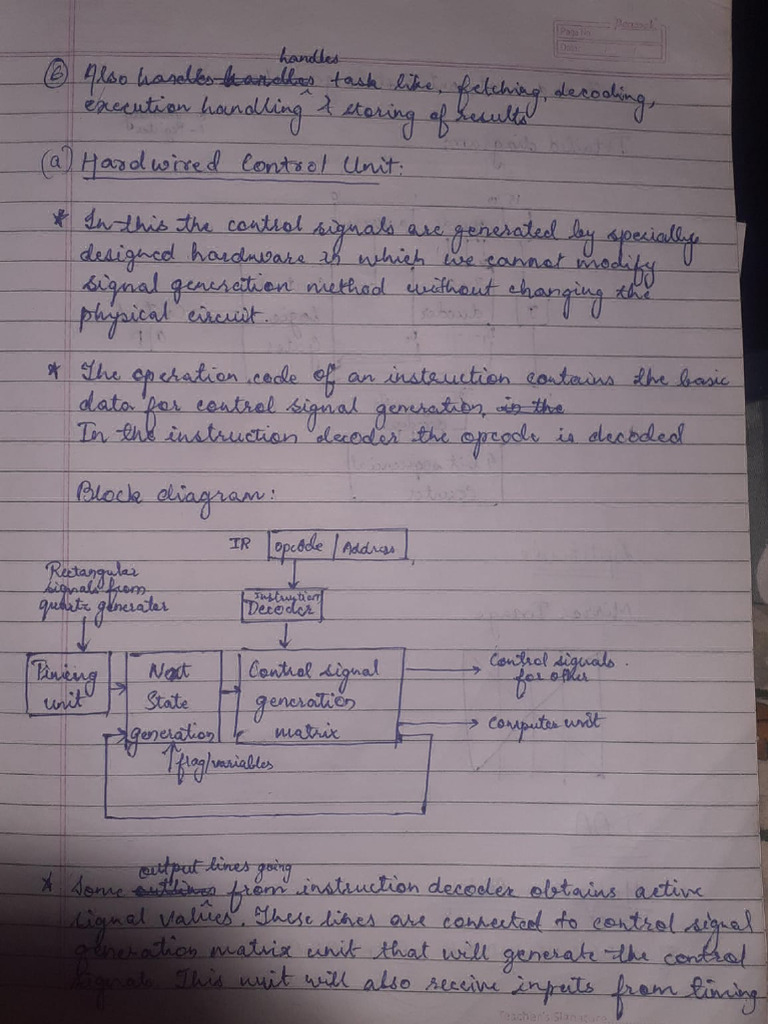 Page No.
Date
handles
⑥ Also handles handles task like, fetching, decoding,
execution handling & storing of results
(a) Hardwired Control Unit:
* In this the control signals are generated by specially
designed hardware in which we cannot modify
signal generation method without changing the
physical circuit.
* The operation code of an instruction contains the basic
data for control signal generation, in the
In the instruction decoder the opcode is decoded
Block diagram:
IR opcode / Address
Rectangular
signals from
quartz generator
Instruction
Decoder
Timing
unit
Next
State
generation
Control signal
generation
matrix
Control signals
for other
computer unit
flag/variables
output lines going
* Some outlines from instruction decoder obtains active
signal values. These lines are connected to control signal
generation matrix unit that will generate the control
signals. This unit will also receive inputs from timing
Teacher's Signature